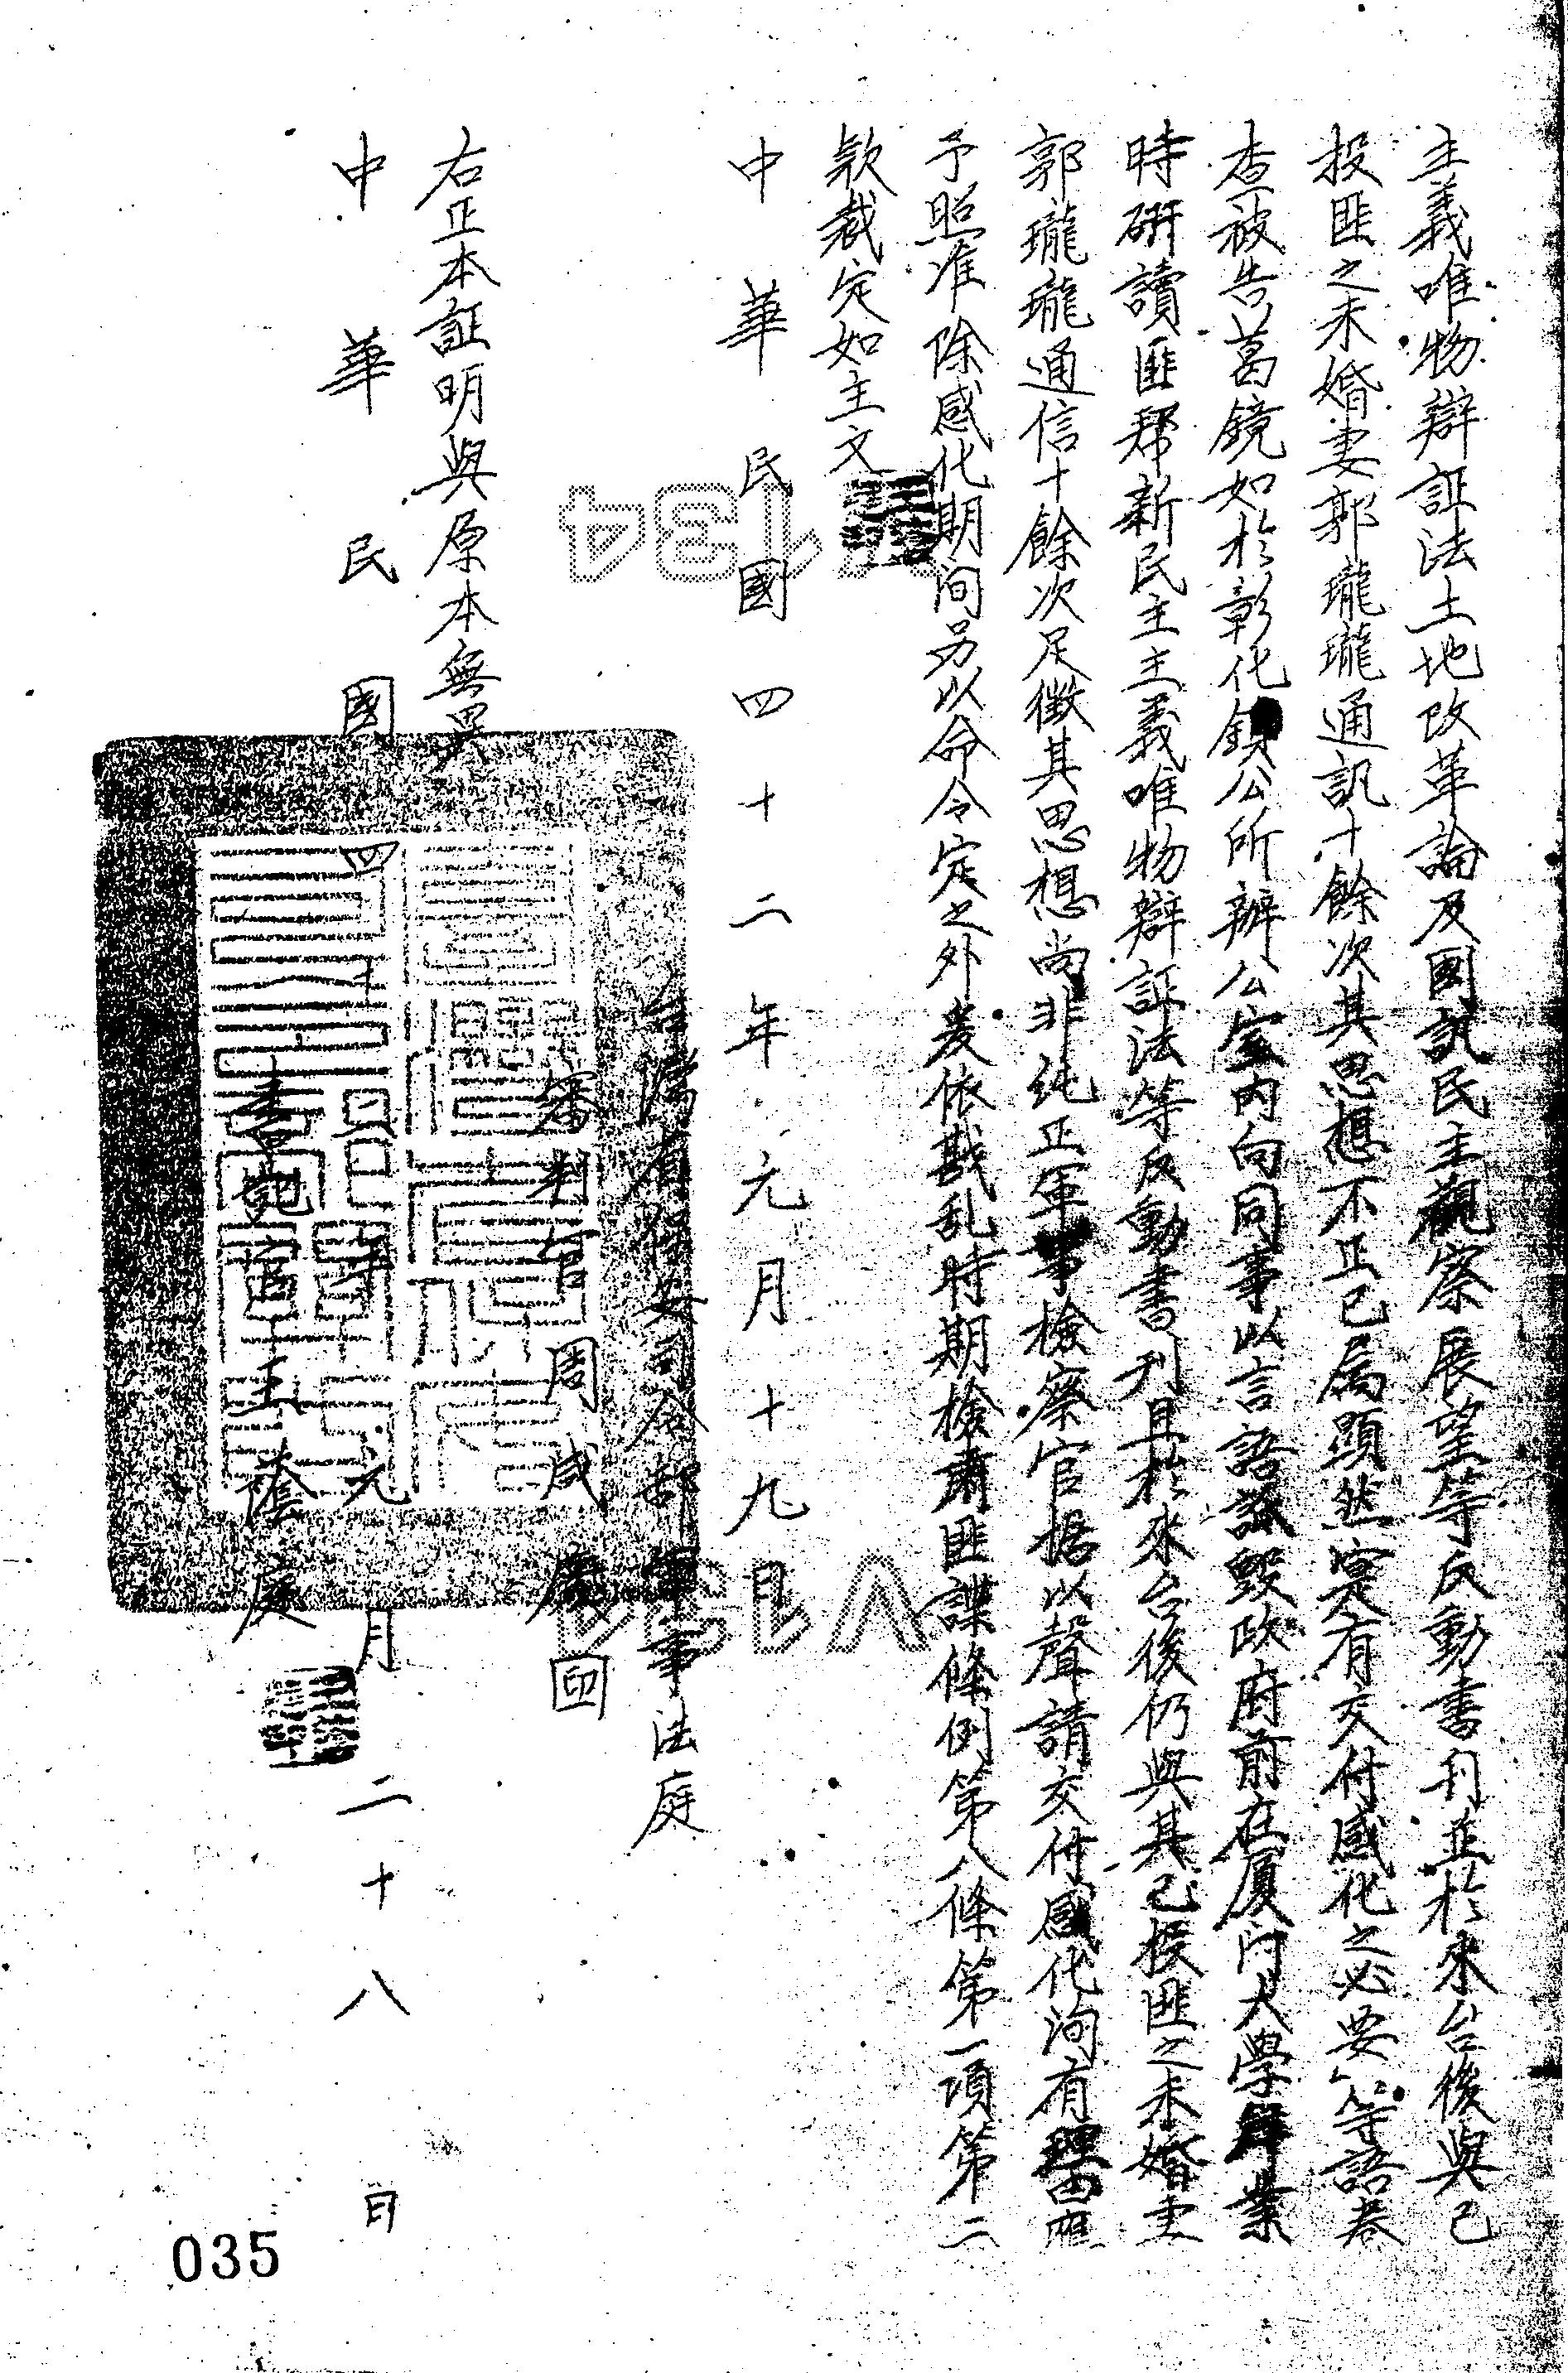 主義唯物辯証法土地改革論及國訊民主觀察展望等反動書刊並於來台後與已
投匪之未婚妻郭瓏瓏通訊十餘次其思想不正已屬顯然寔有交付感化之必要等語卷
查被告葛鏡如於彰化鎮公所辦公室內向同事以言語詆毀政府前在厦门大學肄業
時研讀匪帮新民主主義唯物辯証法等反動書刊且於來台後仍與其已投匪之未婚妻
郭瓏瓏通信十餘次足徵其思想尚非純正軍事檢察官据以聲請交付感化洵有理由應
予照准除感化期间另以命令定之外爰依戡乱時期檢肅匪諜條例第八條第一項第二
款裁定如主文
中華民國四十二年元月十九日
台灣省保安司令部軍事法庭
審判官周咸慶印
右正本証明與原本無異
中華民國四十二年元月二十八日
書記官王陰庭
035